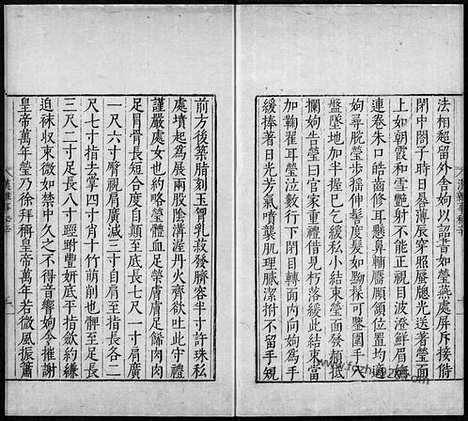 法相超留外舍姁以詔書如瑩燕處屏斥接侍
閉中閤子時日晷薄辰穿照蜃牕光送著瑩面
上如朝霞和雪艷射不能正視目波澄鮮眉嫵
連卷朱口皓齒修耳懸鼻輔靨頤頷位置均適
姁尋脫瑩步搖伸髻度髮如黝髹可鑒圍手八
盤墜地加半握已乞緩私小結束瑩面發頳抵
攔姁告瑩曰官家重禮借見朽落緩此結束當
加鞠翟耳瑩泣數行下閉目轉面內向姁為手
緩捧著日光芳氣噴襲肌理膩潔拊不留手規
前方後築脂刻玉胷乳菽發臍容半寸許珠私
處墳起為展兩股陰溝渥丹火齊欲吐此守禮
謹嚴處女也約略瑩體血足榮膚膚足飾肉肉
足冒骨長短合度自顛至底長七尺一寸肩廣
一尺六寸臀視肩廣減三寸自肩至指長各二
尺七寸指去掌四寸肖十竹萌削也髀至足長
三尺二寸足長八寸踁跗豐妍底平指斂約縑
迫袜收束微如禁中久之不得音響姁令推謝
皇帝萬年瑩乃徐拜稱皇帝萬年若微風振簫
漢雜事秘辛